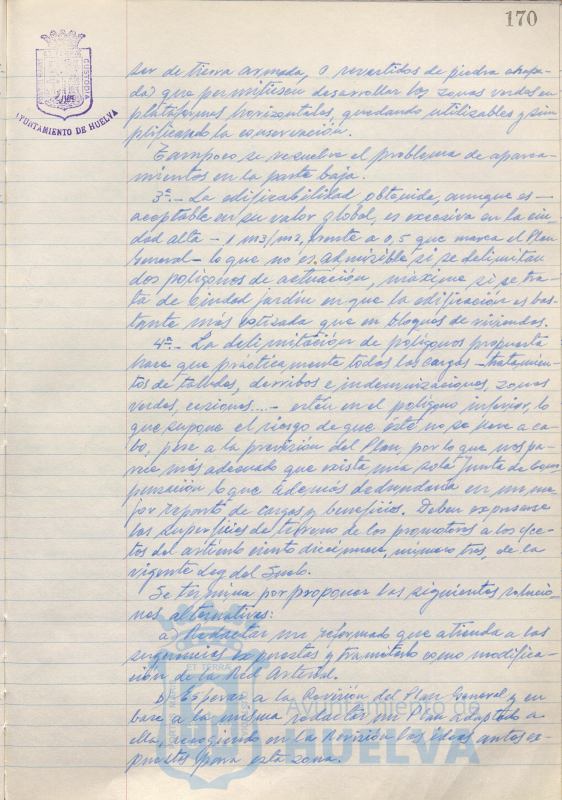 170
AYUNTAMIENTO DE HUELVA
CUSTODIA
ser de tierra armada, o revestidos de piedra chapa-
da) que permitiesen desarrollar las zonas verdes en
plataformas horizontales, quedando utilizables y sim-
plificando la conservación.
Tampoco se resuelve el problema de aparca-
mientos en la parte baja.
3ª.- La edificabilidad obtenida, aunque es
aceptable en su valor global, es excesiva en la ciu-
dad alta - 1 m3/m2, frente a 0,5 que marca el Plan
General - lo que no es admisible si se delimitan
dos polígonos de actuación, máxime si se tra-
ta de Ciudad jardín en que la edificación es bas-
tante más cotizada que en bloques de viviendas.
4ª.- La delimitación de polígonos propuesta
hace que prácticamente todas las cargas - tratamien-
tos de taludes, derribos e indemnizaciones, zonas
verdes, cesiones...- estén en el polígono inferior, lo
que supone el riesgo de que éste no se lleve a ca-
bo, pese a la previsión del Plan, por lo que nos pa-
rece más adecuado que exista una sola Junta de Com-
pensación lo que además redundaría en un me-
jor reparto de cargas y beneficios. Deben expresarse
las superficies de terreno de los promotores a los efec-
tos del artículo ciento diecinueve, número tres, de la
vigente Ley del Suelo.
Se termina por proponer las siguientes solucio-
nes alternativas:
a) Redactar un reformado que atienda a las
sugerencias expuestas y tramitarlo como modifica-
ción de la Red Arterial.
b) Esperar a la Revisión del Plan General y en
base a la misma redactar un Plan adaptado a
ella, recogiendo en la Revisión las ideas antes ex-
puestas para esta zona.
Ayuntamiento de
HUELVA